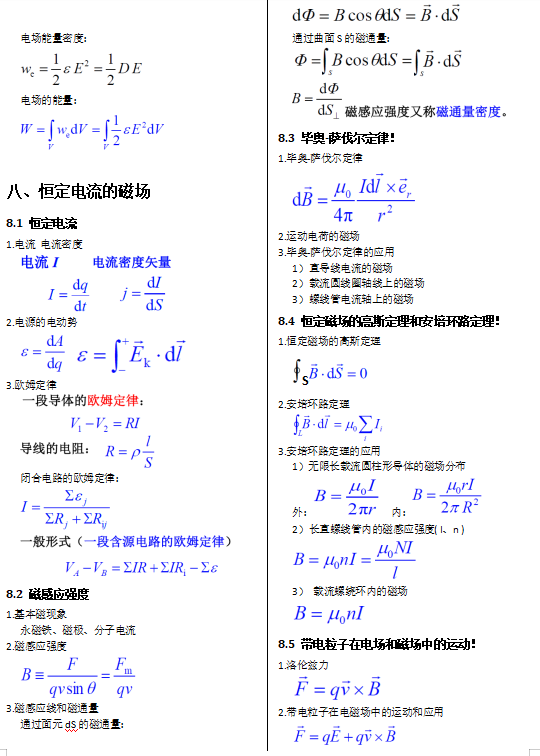 电场能量密度：
wₑ = 1/2 ε E² = 1/2 D E
电场的能量：
W = ∫_V wₑdV = ∫_V 1/2 εE²dV
八、恒定电流的磁场
8.1 恒定电流
1.电流 电流密度
电流 I 电流密度矢量
I = dq/dt j = dI/dS
2.电源的电动势
ε = dA/dq ε = ∫₋⁺ E⃗ₖ · dl⃗
3.欧姆定律
一段导体的欧姆定律：
V₁ − V₂ = RI
导线的电阻： R = ρ l/S
闭合电路的欧姆定律：
I = Σε_j / (ΣR_j + ΣR_ij)
一般形式（一段含源电路的欧姆定律）
V_A − V_B = ΣIR + ΣIR_i − Σε
8.2 磁感应强度
1.基本磁现象
永磁铁、磁极、分子电流
2.磁感应强度
B ≡ F/(qv sin θ) = F_m/(qv)
3.磁感应线和磁通量
通过面元 dS 的磁通量：
dΦ = B cos θdS = B⃗ · dS⃗
通过曲面 S 的磁通量：
Φ = ∫_s B cos θdS = ∫_s B⃗ · dS⃗
B = dΦ/dS⊥ 磁感应强度又称磁通量密度。
8.3 毕奥-萨伐尔定律！
1.毕奥-萨伐尔定律
dB⃗ = μ₀/4π Idl⃗ × e⃗_r / r²
2.运动电荷的磁场
3.毕奥-萨伐尔定律的应用
1）直导线电流的磁场
2）载流圆线圈轴线上的磁场
3）螺线管电流轴上的磁场
8.4 恒定磁场的高斯定理和安培环路定理！
1.恒定磁场的高斯定理
∮_S B⃗ · dS⃗ = 0
2.安培环路定理
∮_L B⃗ · dl⃗ = μ₀ Σ_i I_i
3.安培环路定理的应用
1）无限长载流圆柱形导体的磁场分布
外： B = μ₀I/2πr 内： B = μ₀rI/2πR²
2）长直螺线管内的磁感应强度( I、n )
B = μ₀nI = μ₀NI/l
3） 载流螺绕环内的磁场
B = μ₀nI
8.5 带电粒子在电场和磁场中的运动！
1.洛伦兹力
F⃗ = qv⃗ × B⃗
2.带电粒子在电磁场中的运动和应用
F⃗ = qE⃗ + qv⃗ × B⃗